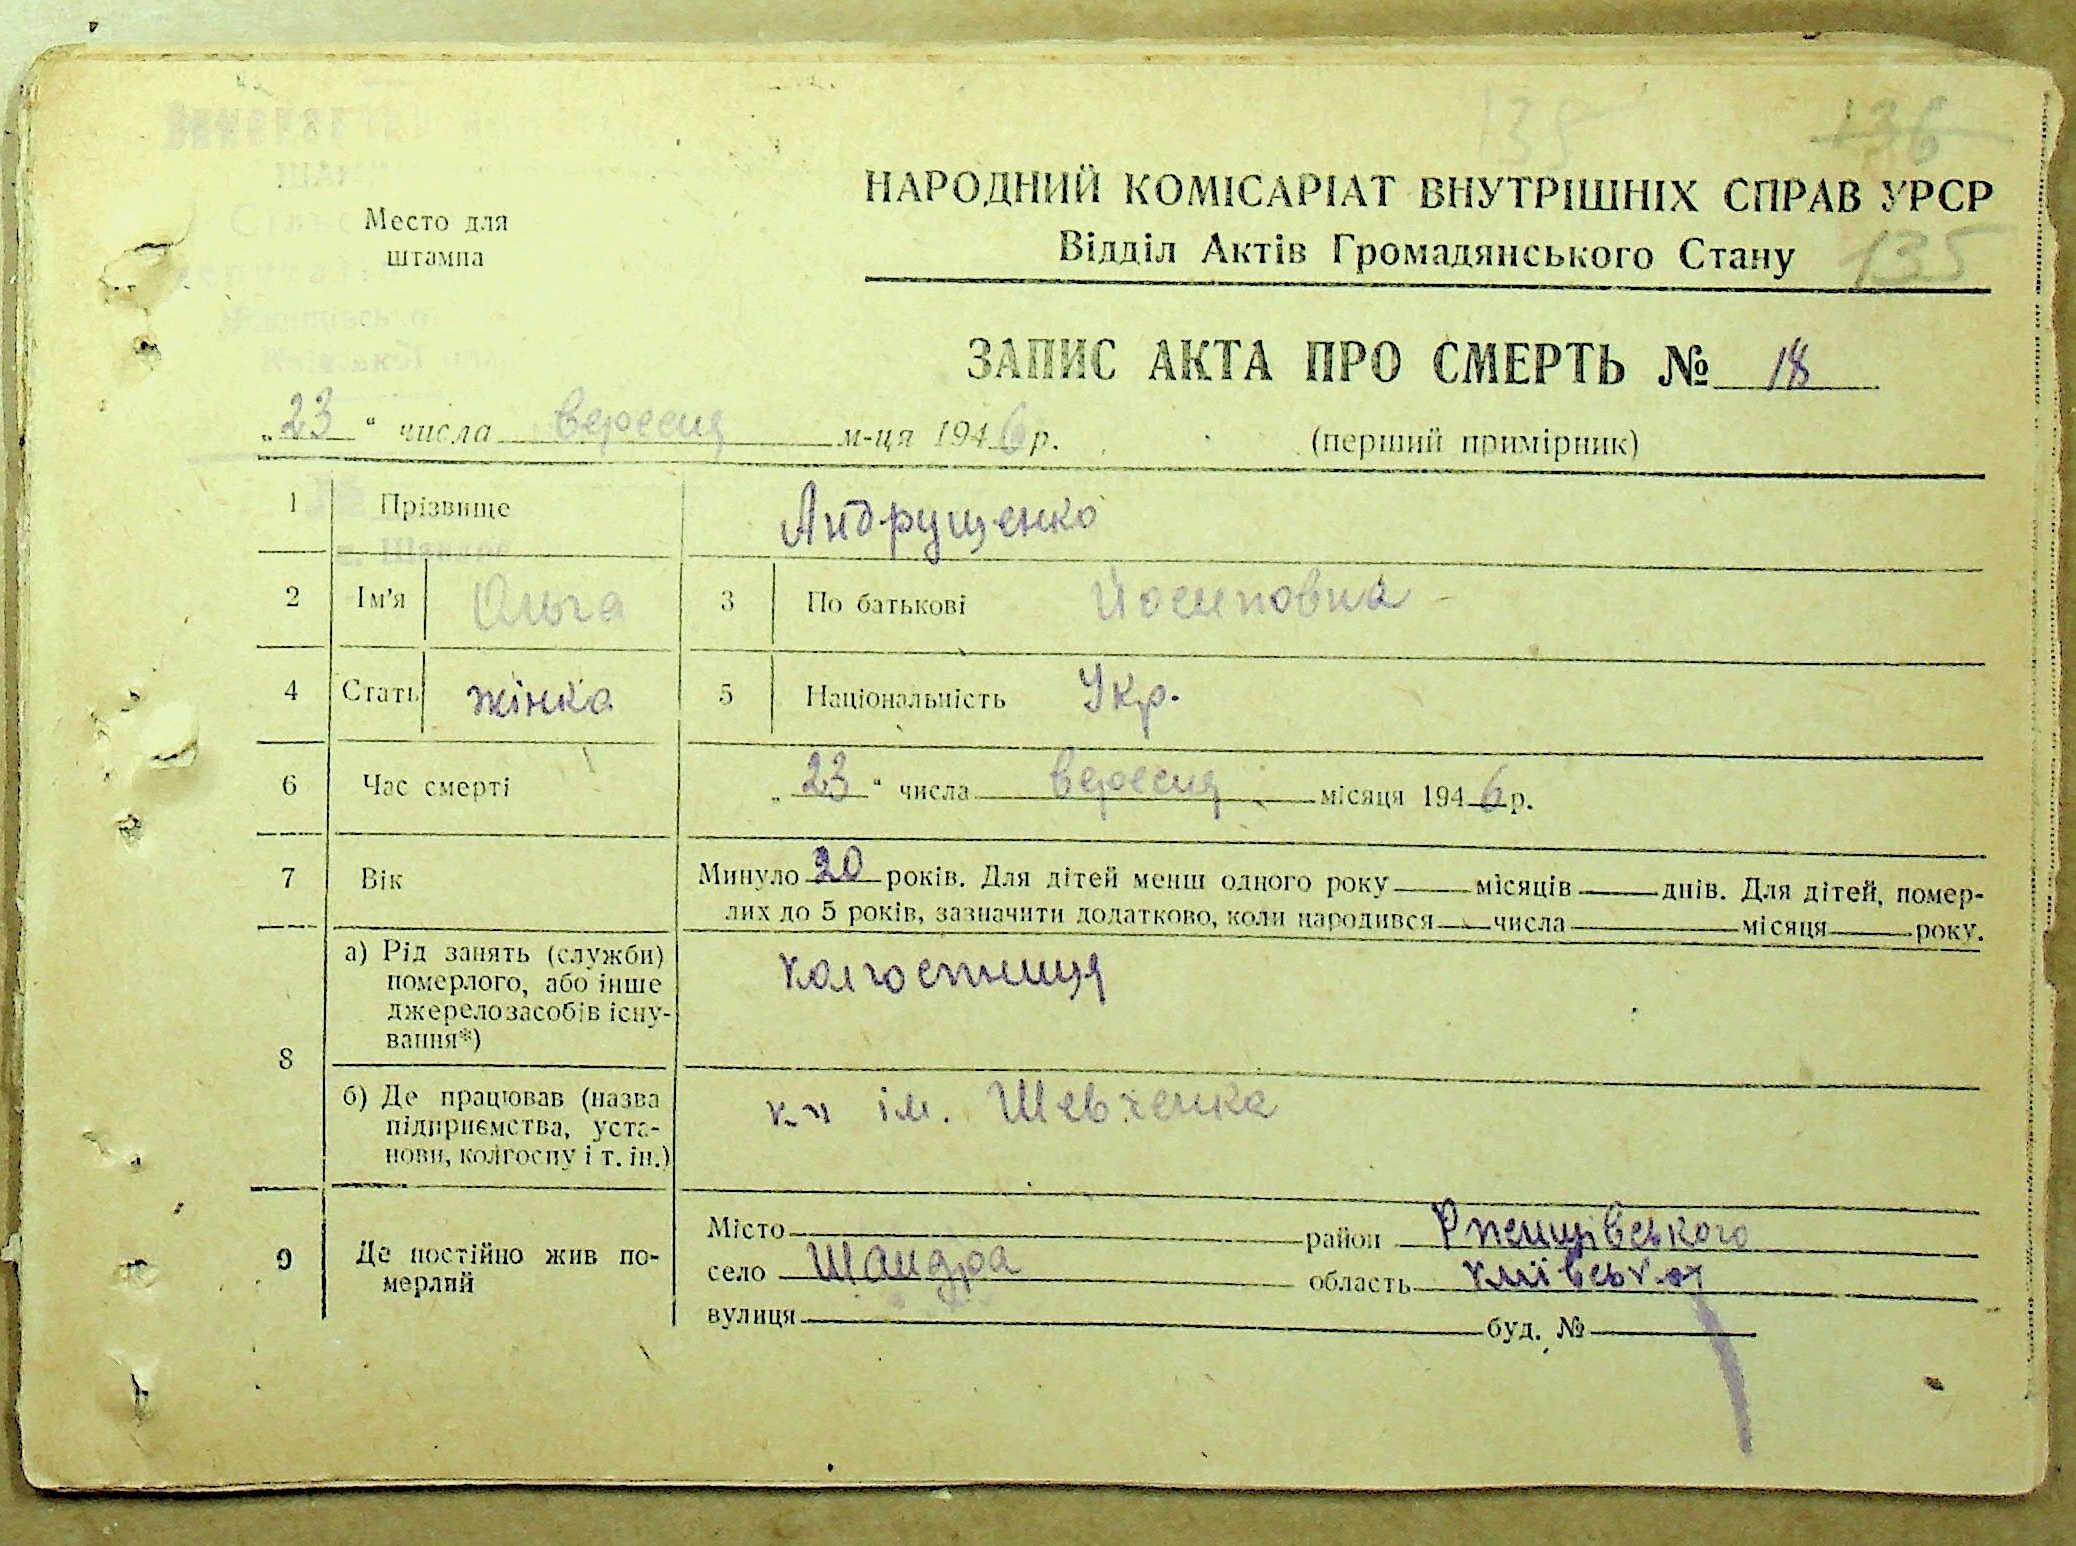 135 136
НАРОДНИЙ КОМІСАРІАТ ВНУТРІШНІХ СПРАВ УРСР
Место для
штампа
Відділ Актів Громадянського Стану 135
ЗАПИС АКТА ПРО СМЕРТЬ № 18
„23“ числа вересня м-ця 1946 р. (перший примірник)
1 Прізвище Андрущенко
2 Ім'я Ольга 3 По батькові Йосиповна
4 Стать жінка 5 Національність Укр.
6 Час смерті „23“ числа вересня місяця 1946 р.
7 Вік Минуло 20 років. Для дітей менш одного року місяців днів. Для дітей, помер-
лих до 5 років, зазначити додатково, коли народився числа місяця року.
8 а) Рід занять (служби)
померлого, або інше
джерело засобів існу-
вання*)
колгостниця
б) Де працював (назва
підприємства, уста-
нови, колгоспу і т. ін.)
ім. Шевченка
9 Де постійно жив по-
мерлий
Місто район Ржищівського
село Шандра область
вулиця буд. №